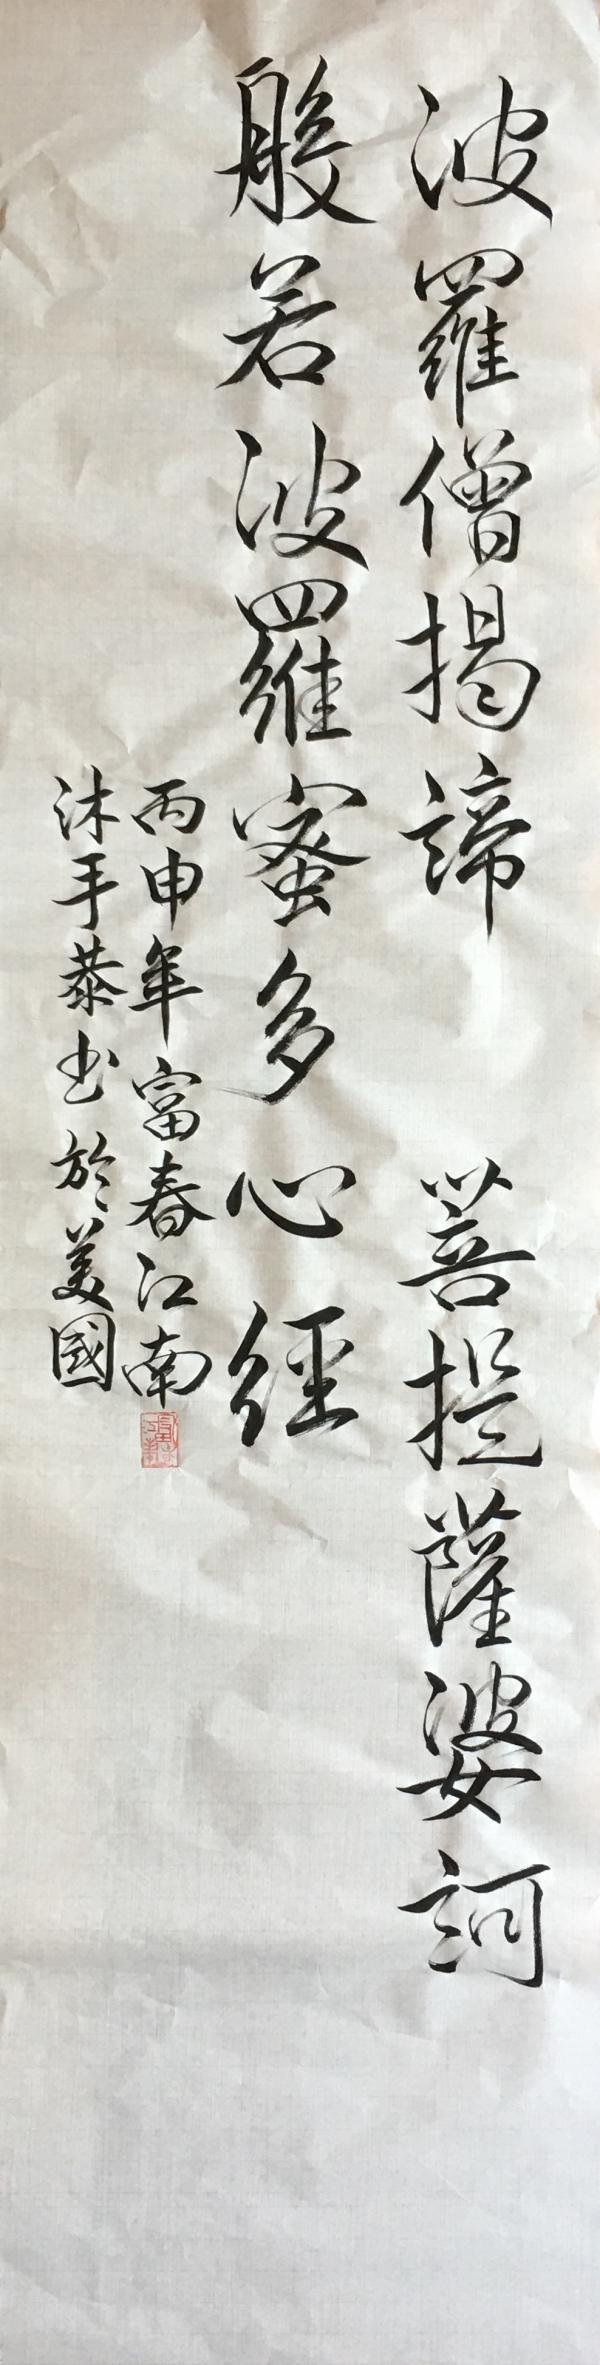 波羅僧揭諦 菩提薩婆訶
般若波羅蜜多心經
丙申年富春江南
沐手恭书於美國